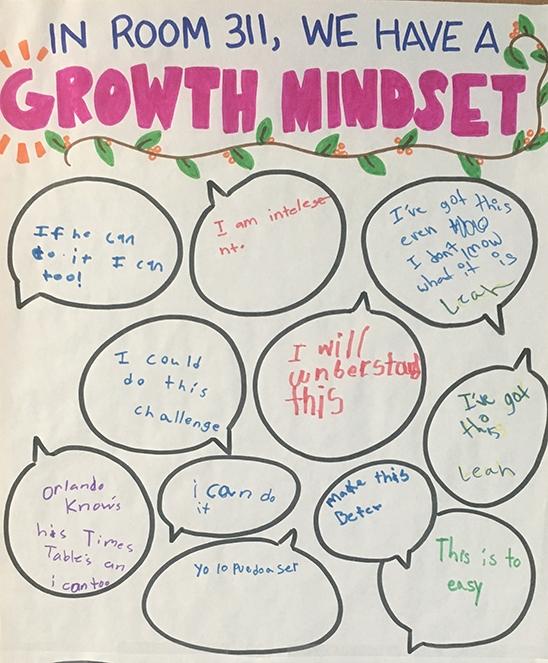 IN ROOM 311, WE HAVE A
GROWTH MINDSET
If he can
do it I can
too!
I am intelese
nt.
I've got this
even tho
I don't know
what it is
Leah
I could
do this
challenge
I will
unberstand
this
I've got
this
Leah
Orlando
Knows
his Times
Table's an
i can too
i can do
it
make this
Beter
Yo lo puedo aser
This is to
easy